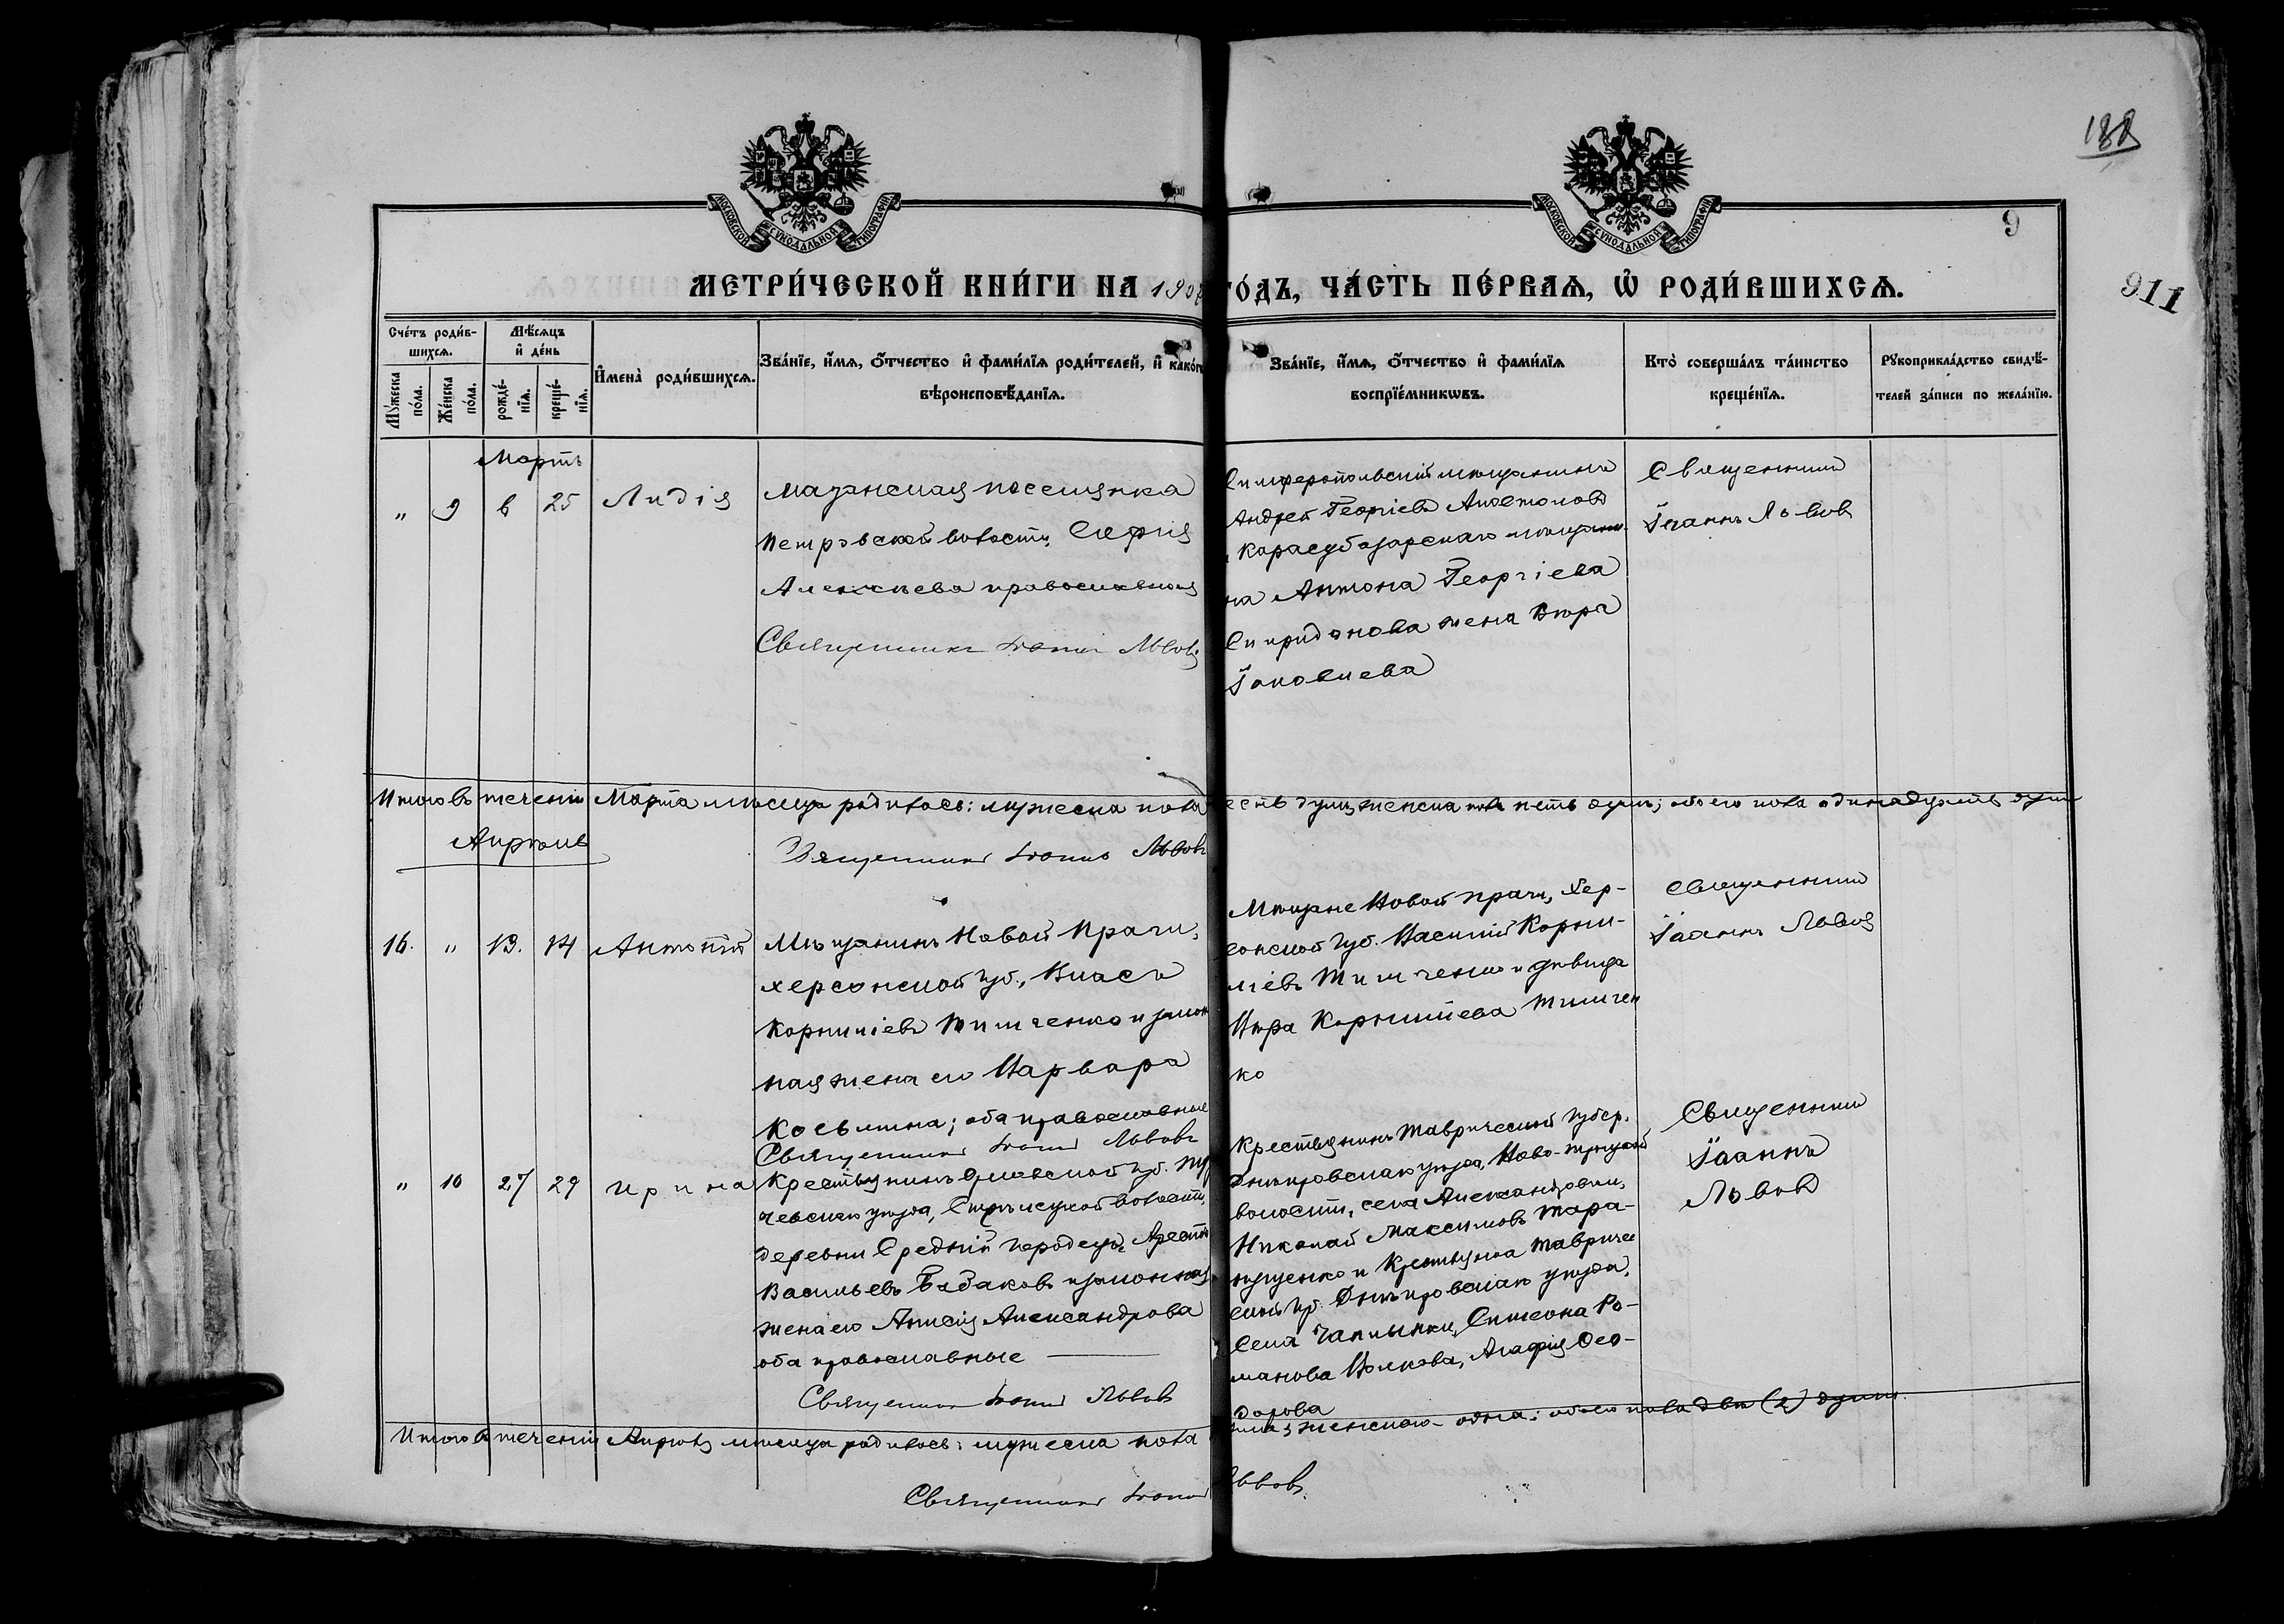 188
9
911
МОСКОВСКОЙ СУНОДАЛЬНОЙ ТИПОГРАФІИ
МОСКОВСКОЙ СУНОДАЛЬНОЙ ТИПОГРАФІИ
МЕТРИ́ЧЕСКОЙ КНИ́ГИ НА 190 ГО́ДЪ, ЧА́СТЬ ПЕ́РВАЯ, Ѡ҆ РОДИ́ВШИХСЯ.
Сче́тъ роди́в-
шихся.
Му́жеска по́ла.
Же́нска по́ла.
Мѣ́сяцъ
и҆ де́нь
рожде́-
нїя.
креще́-
нїя.
И҆мена̀ роди́вшихся.
Зва́нїе, и҆́мя, ѻ҆́тчество и҆ фами́лїя роди́телей, и҆ како́гѡ
вѣроисповѣ́данїя.
Зва́нїе, и҆́мя, ѻ҆́тчество и҆ фами́лїя
воспрїе́мникѡвъ.
Кто̀ соверша́лъ та́инство
креще́нїя.
Рꙋкоприкла́дство свидѣ́-
телей за́писи по жела́нїю.
Мартъ
" 9 6 25 Лидія
Мазанская поселянка
Петровской волости, Софія
Алексѣева православная
Священникъ Іоаннъ Львовъ
Симферопольскій мѣщанинъ
Андрей Георгіевъ Апостоловъ
и Карасубазарскаго мѣщани-
на Антона Георгіева
Спиридонова жена Вѣра
Іаковлева
Священникъ
Іоаннъ Львовъ
Итого въ теченіи Марта мѣсяца родилось: мужеска пола шесть душъ, женска пола пять душъ; обоего пола одинадцать душъ
Священникъ Іоаннъ Львовъ
Апрѣль
16. " 13. 14 Антоній
Мѣщанинъ Новой Праги,
Херсонской губ., Власъ
Корниліевъ Тимченко и закон
ная жена его Варвара
Косьмина; оба православные
Священникъ Іоаннъ Львовъ
Мѣщане Новой Праги, Хер-
сонской губ. Василій Корни-
ліевъ Тимченко и дѣвица
Вѣра Корниліева Тимчен
ко
Священникъ
Іоаннъ Львовъ
" 10 27 29 Ирина
Крестьянинъ Орловской губ.
чевскаго уѣзда, волости,
деревни Средній Городецъ,
Васильевъ и законная
жена его Александрова
оба православные
Священникъ Іоаннъ Львовъ
Крестьянинъ Таврической губер.
Днѣпровскаго уѣзда, Ново-Троицкой
волости, села Александровки,
Николай Максимовъ Тара-
нущенко и Крестьянка Тавричес
кой губ. Днѣпровскаго уѣзда,
Села Чаплынки, Симеона Ро-
манова Волкова, Агафія Ѳео-
дорова
Священникъ
Іоаннъ
Львовъ
Итого въ теченіи Апрѣля мѣсяца родилось: мужеска пола одна; женскаго одна; обоего пола двѣ (2) души.
Священникъ Іоаннъ Львовъ